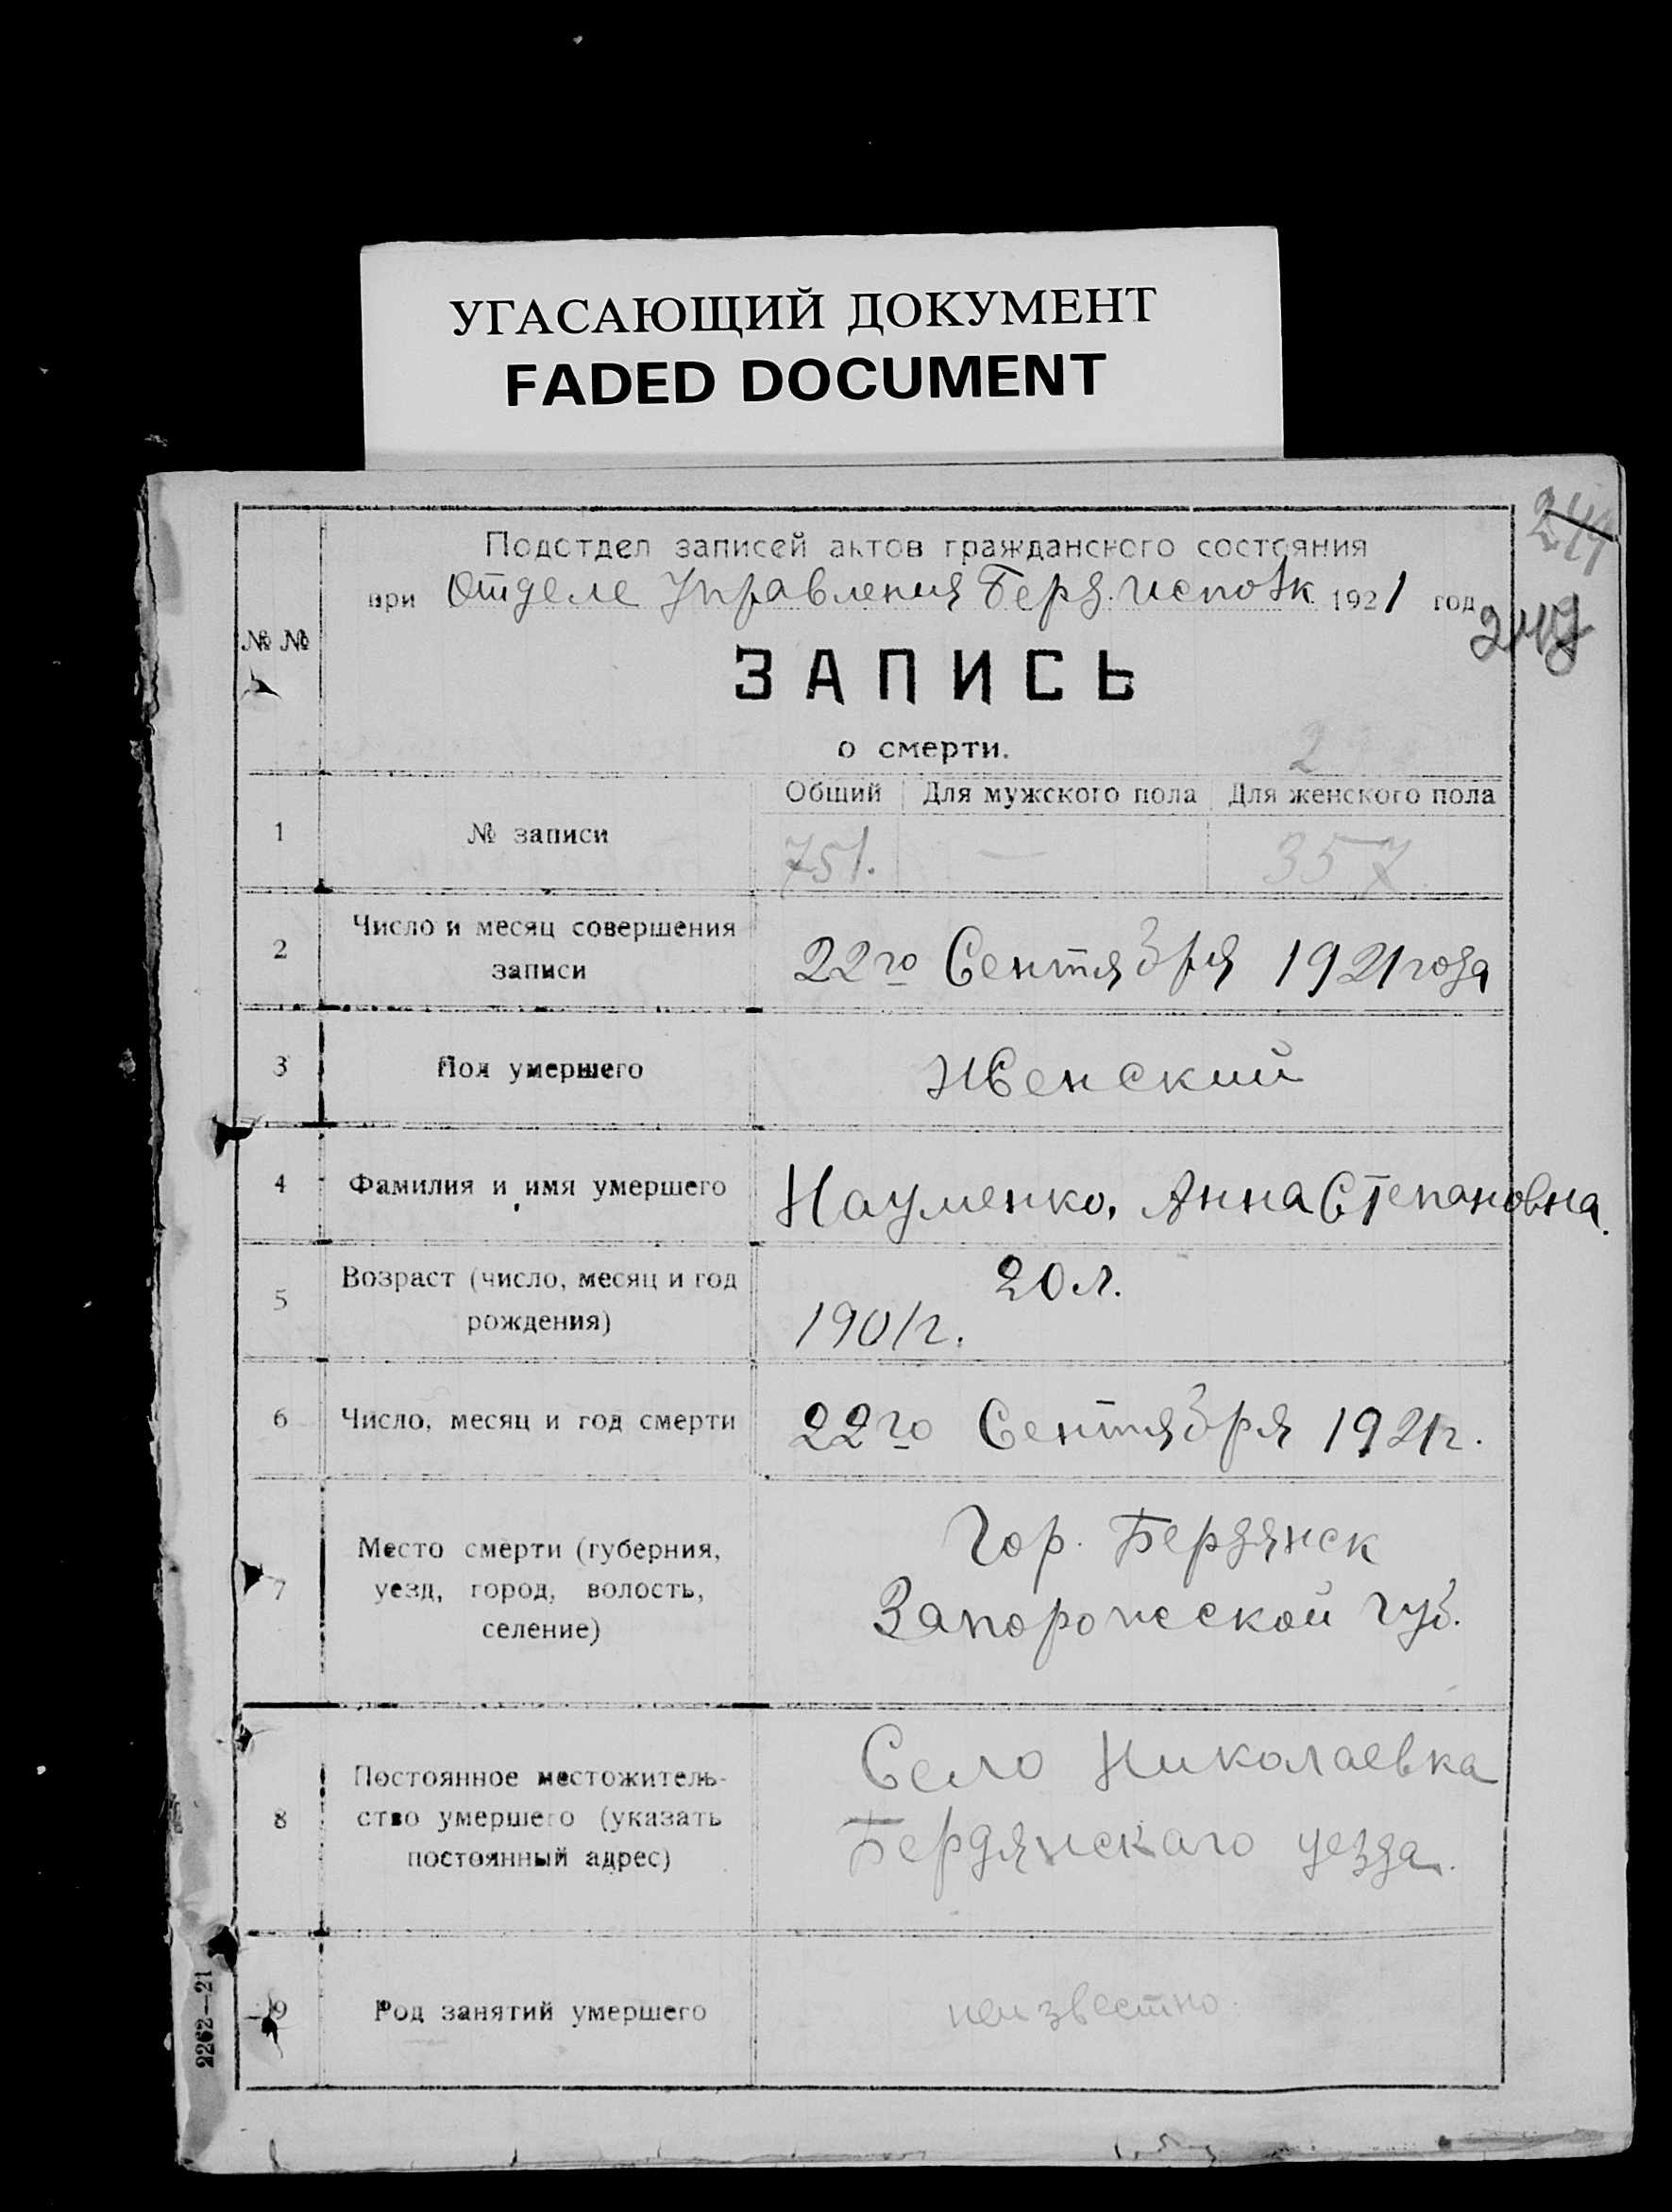 УГАСАЮЩИЙ ДОКУМЕНТ
FADED DOCUMENT
244
Подотдел записей актов гражданского состояния
при Отделе Управления Берд. Исповк 1921 год
247
№ №
ЗАПИСЬ
о смерти.
2
Общий Для мужского пола Для женского пола
1 № записи 751. — 357
2 Число и месяц совершения
записи
22го Сентября 1921 года
3 Пол умершего Женский
4 Фамилия и имя умершего Науменко, Анна Степановна.
5 Возраст (число, месяц и год
рождения)
20 л.
1901 г.
6 Число, месяц и год смерти 22го Сентября 1921 г.
7 Место смерти (губерния,
уезд, город, волость,
селение)
Гор. Бердянск
Запорожской губ.
8 Постоянное местожитель-
ство умершего (указать
постоянный адрес)
Село Николаевка
Бердянскаго уезда.
9 Род занятий умершего неизвестно.
2262—21